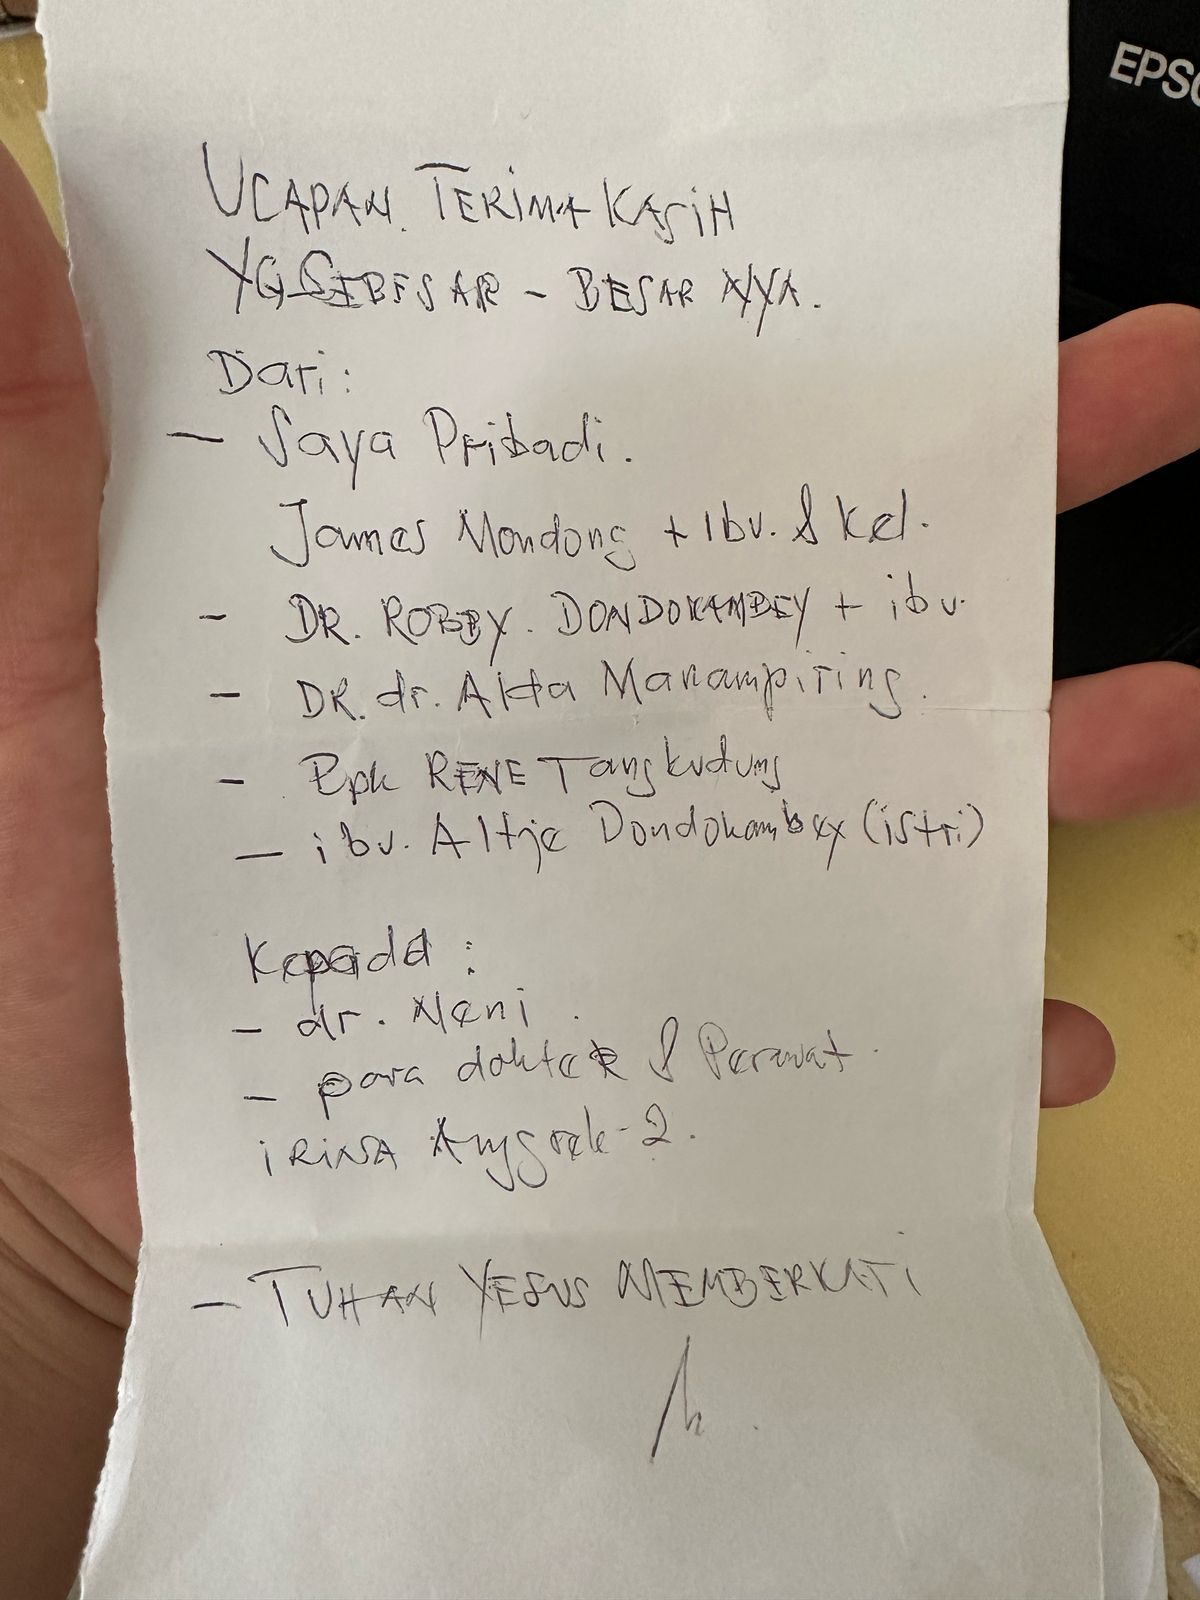 EPSO
UCAPAN TERIMA KASIH
YG SEBESAR - BESAR NYA.
Dari:
- Saya Pribadi.
James Mondong + Ibu. & Kel.
- DR. ROBBY. DONDOKAMBEY + ibu.
- DR. dr. Alda Manampiring.
- Bpk RENE Tangkudung
- ibu. Altje Dondokambey (istri)
Kepada :
- dr. Neni.
- para dokter & Perawat.
IRINA Anggrek-2.
- TUHAN YESUS MEMBERKATI